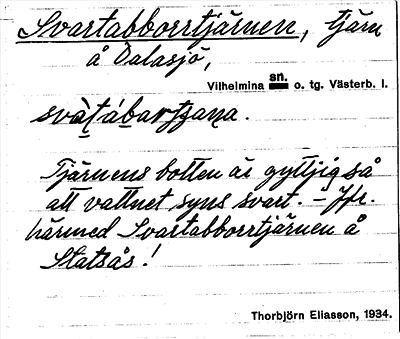 Svartabborrtjärnen, tjärn
å Dalasjö,
Vilhelmina sn. o. tg. Västerb. l.
svàṭábarṭʒana.
Tjärnens botten är gyttjig så
att vattnet syns svart. – Jfr.
härmed Svartabborrtjärnen å
Statsås!
Thorbjörn Eliasson, 1934.